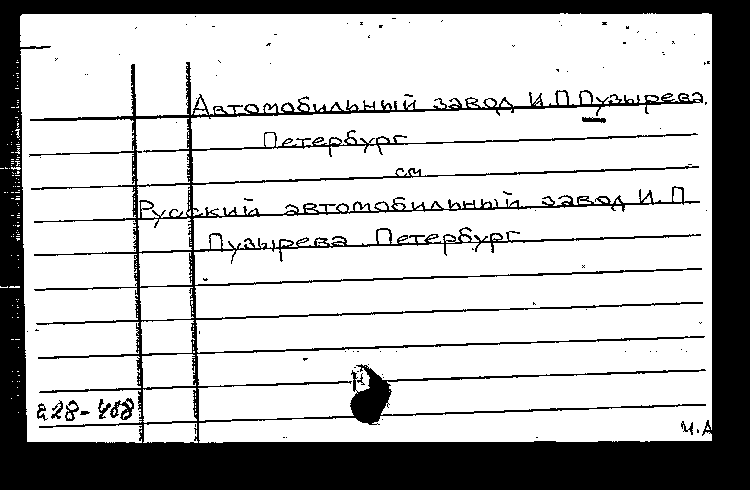 Автомобильный завод И.П.Пузырева.
Петербург
см
Русский автомобильный завод И.П.
Пузырева. Петербург
228-468
Ч.А